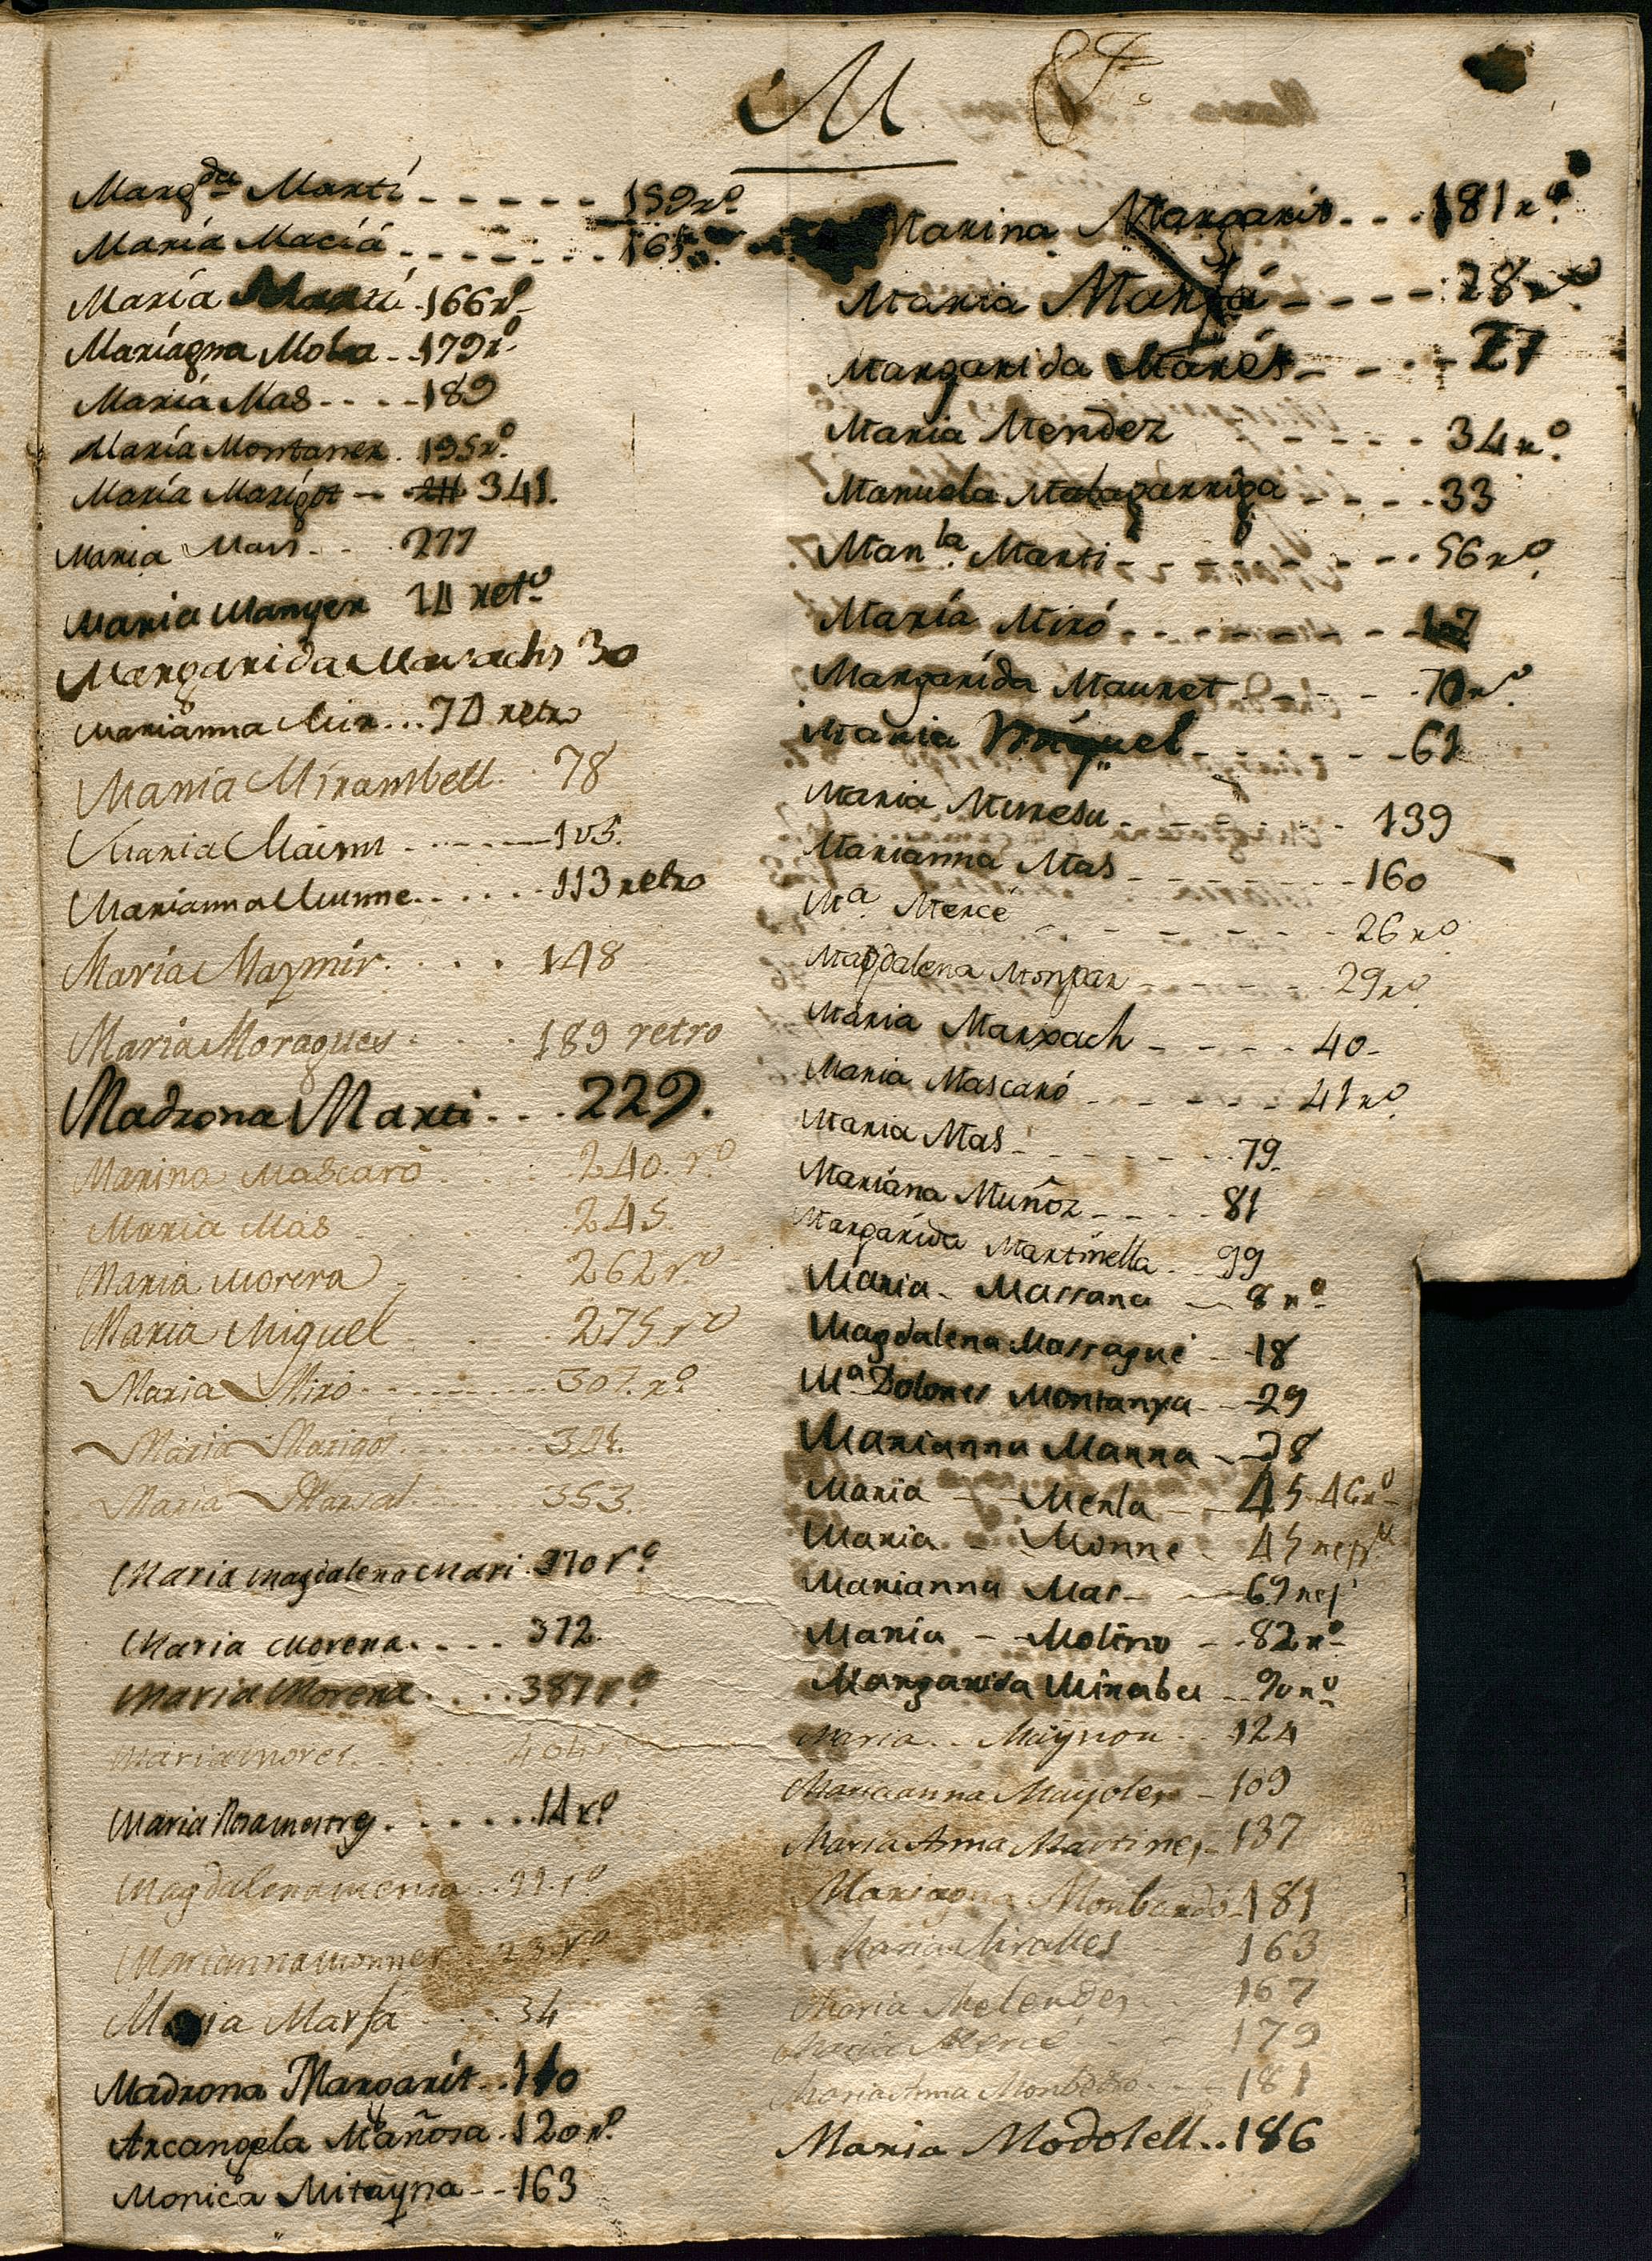 M
Marg.da Martí - - - - - 159 r.o
María Maciá - - - - - - 165
María 166 r.o
Mariagna Mola - - 179 r.o
María Mas - - - - 189
María Montaner. 195 r.o
María Marigot - - 341.
Maria Mars. . . 277
Maria Manyer 14 ret.o
Margarida 30
Marianna Mir . . . 70 retro
Maria Mirambell . . 78
Maria - - - - 105.
Marianna Munne. . . . . 113 retro
Maria Maymir. . . . 148
Maria Moragues . . . 189 retro
Madrona Marti . . . 229.
Marina Mascaró . . . 240. r.o
Maria Mas . . . 245.
Maria Morera . . . 262 r.o
Maria Miguel . . . 275 r.o
Maria Miró . . . . . . 307. r.o
Maria Marigót . . . . .
Maria Marsal . . . . 353.
Maria Magdalena Mari . 370 r.o
Maria Morera. . . . 372.
Maria Morera . . . . 387 r.o
Maria Mores. . . . 404 r
Maria Rosa Mestres . . . . . . 14 r.o
Magdalena . . 22. r.o
Marianna Monner . . 23. r.o
Maria Marsá . . . 34
Madrona Margarit . . 110
Arcangela Mañosa . 120 r.o
Monica Mitayna - - 163
Marina Margarit. - - - 181 r.o
Maria - - - - 28 r.o
Margarida Marés - - - - 27
Maria Mendez - - - - 34 r.o
Manuela Malagarriga - - - - 33
Man.la Marti - - - - - - - 56 r.o
María Miró . - - - - - - - 17
Margarida Mauret - - - - 70 r.o
Maria Miquel - - - - - 61
Maria - - - - - 139
Marianna Mas - - - - - - 160
M.a Mercé - - - - - - - 26 r.o
Magdalena Monpar - - - - - 29 r.o
Maria Marxach - - - - 40 -
Maria Mascaró - - - - - 41 r.o
Maria Mas - - - - - - 79.
Mariána Muñoz - - - - 81
Margarida Martinella - - 99
Maria - Massana - 8 r.o
Magdalena Massagué - 18
M.a Dolores Montanya - - 29
Marianna Manna - 38
Maria - Merla - - 45 46 r.o
Maria - Monne - 45
Marianna Mas - - 69
Maria - Molino - - 82 r.o
Margarida Mirabu - - 90 r.o
Maria . . Maynou . . 124
Mariaanna Mayoles - 109
Maria Anna Martines - 137
Mariagna Monbardo - 181
Maria Miralles 163
Maria Melendes . . 167
Maria Mercé - - 179
Maria Anna - - - 181
Maria Modolell . . 186